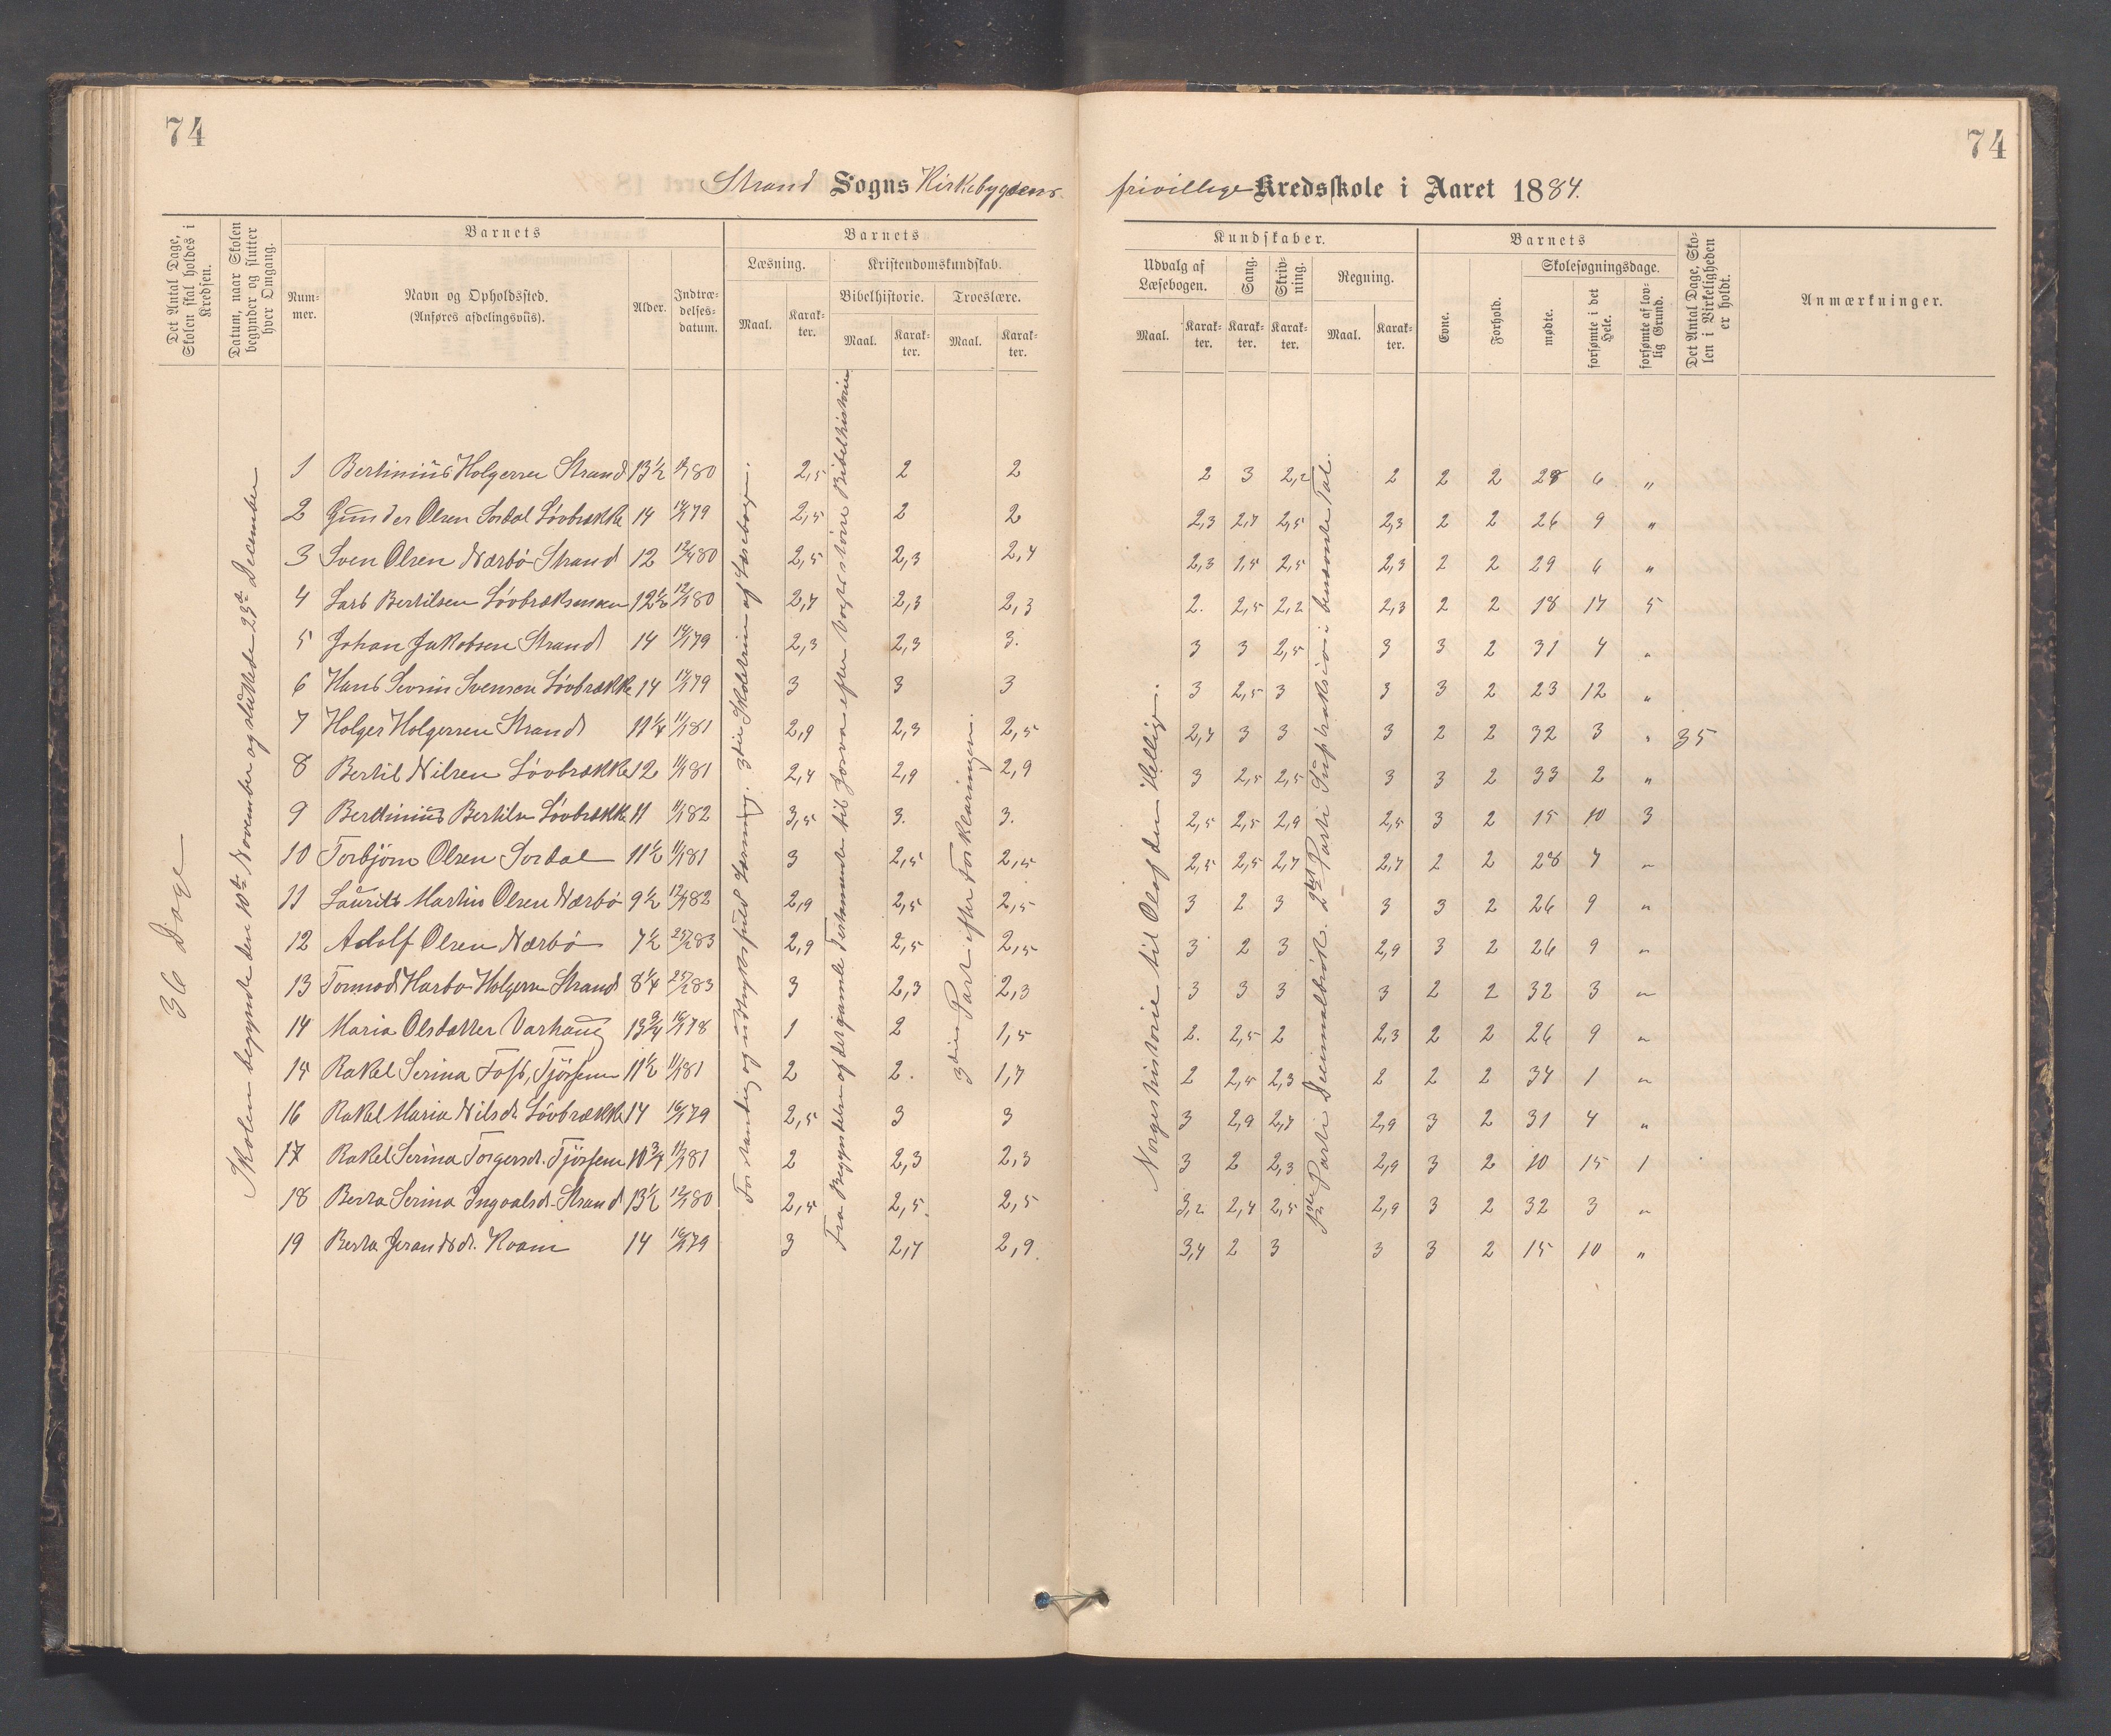 74
74
Strand Sogns Kirkebygdens frivillige Kredsskole i Aaret 1884.
Det Antal Dage, Skolen skal holdes i Kredsen.
Datum, naar Skolen begynder og slutter hver Omgang.
Barnets
Barnets
Kundskaber.
Barnets
Det Antal Dage, Skolen i Virkeligheden er holdt.
Anmærkninger.
Nummer.
Navn og Opholdssted.
(Anføres afdelingsviis).
Alder.
Indtrædelsesdatum.
Læsning.
Kristendomskundskab.
Bibelhistorie.
Troeslære.
Udvalg af Læsebogen.
Sang.
Skrivning.
Regning.
Evne.
Forhold.
Skolesøgningsdage.
mødte.
forsømte i det Hele.
forsømte af lovlig Grund.
Maal. Karakter. Maal. Karakter. Maal. Karakter.
Maal. Karakter. Karakter. Karakter. Maal. Karakter.
36 Dage
Skolen begyndte den 10de November og sluttede 23de December
Forstandig og udtryksfuld Læsning. 3die Skoletrin af Læsebogen.
Fra Begyndelsen af det gamle Testamente til Josva efter Vogts större Bibelhistorie
3die Part efter Forklaringen.
Norgeshistorie til Olaf den Hellige.
1ste Parti Decimalbrök. 2det Parti Subtraksion i benævnte Tal.
1 Bertinius Holgersen Strand 13½ 80 2,5 2 2 2 3 2,2 2 2 2 28 6 „
2 Gunder Olsen Sordal Lövbrække 14 79 2,5 2 2 2,3 2,7 2,5 2,3 2 2 26 9 „
3 Sven Olsen Nærbö Strand 12 80 2,5 2,3 2,4 2,3 1,5 2,5 2,3 2 2 29 6 „
4 Lars Bertilsen 12½ 80 2,7 2,3 2,3 2. 2,5 2,2 2,3 2 2 18 17 5
5 Johan Jakobsen Strand 14 79 2,3 2,3 3. 3 3 2,5 3 3 2 31 4 „
6 Hans Sevrin Svensen Lövbrække 14 79 3 3 3 3 2,5 3 3 3 2 23 12 „
7 Holger Holgersen Strand 11¼ 11/1 81 2,9 2,3 2,5 2,7 3 3 3 2 2 32 3 „ 35
8 Bertil Nilsen Lövbrække 12 11/1 81 2,4 2,9 2,9 3 2,5 2,5 3 3 2 33 2 „
9 Berdinius Bertilsn Lövbrække 11 82 3,5 3. 3. 2,5 2,5 2,9 2,5 3 2 15 10 3
10 Torbjörn Olsen Sordal 11½ 11/1 81 3 2,5 2,5 2,5 2,5 2,7 2,7 2 2 28 7 „
11 Laurits Martin Olsen Nærbö 9½ 82 2,9 2,5 2,5 3 2 3 3 3 2 26 9 „
12 Adolf Olsen Nærbö 7½ 83 2,9 2,5 2,5 3 2 3 2,9 3 2 26 9 „
13 Tormod Harbo Holgersn Strand 8¼ 83 3 2,3 2,3 3 3 3 3 2 2 32 3 „
14 Maria Olsdatter Varhaug 13¾ 78 1 2 1,5 2. 2,5 2 2,3 2 2 26 9 „
15 Rakel Serina Foss, Tjössem 11½ 11/1 81 2 2. 1,7 2 2,5 2,3 2 2 2 34 1 „
16 Rakel Maria Nilsdr. Lövbrække 14 79 2,5 3 3 3 2,9 2,7 2,9 3 2 31 4 „
17 Rakel Serina Torgersdr. Tjössem 10¾ 81 2 2,3 2,3 3 2 2,3 2,9 3 2 10 15 1
18 Berta Serina Ingvalsdr. Strand 13½ 80 2,5 2,5. 2,5 3,2 2,4 2,5 2,9 3 2 32 3 „
19 Berta Jerandsdr. Kvam 14 79 3 2,7 2,9. 3,4 2 3 3 3 2 15 10 „